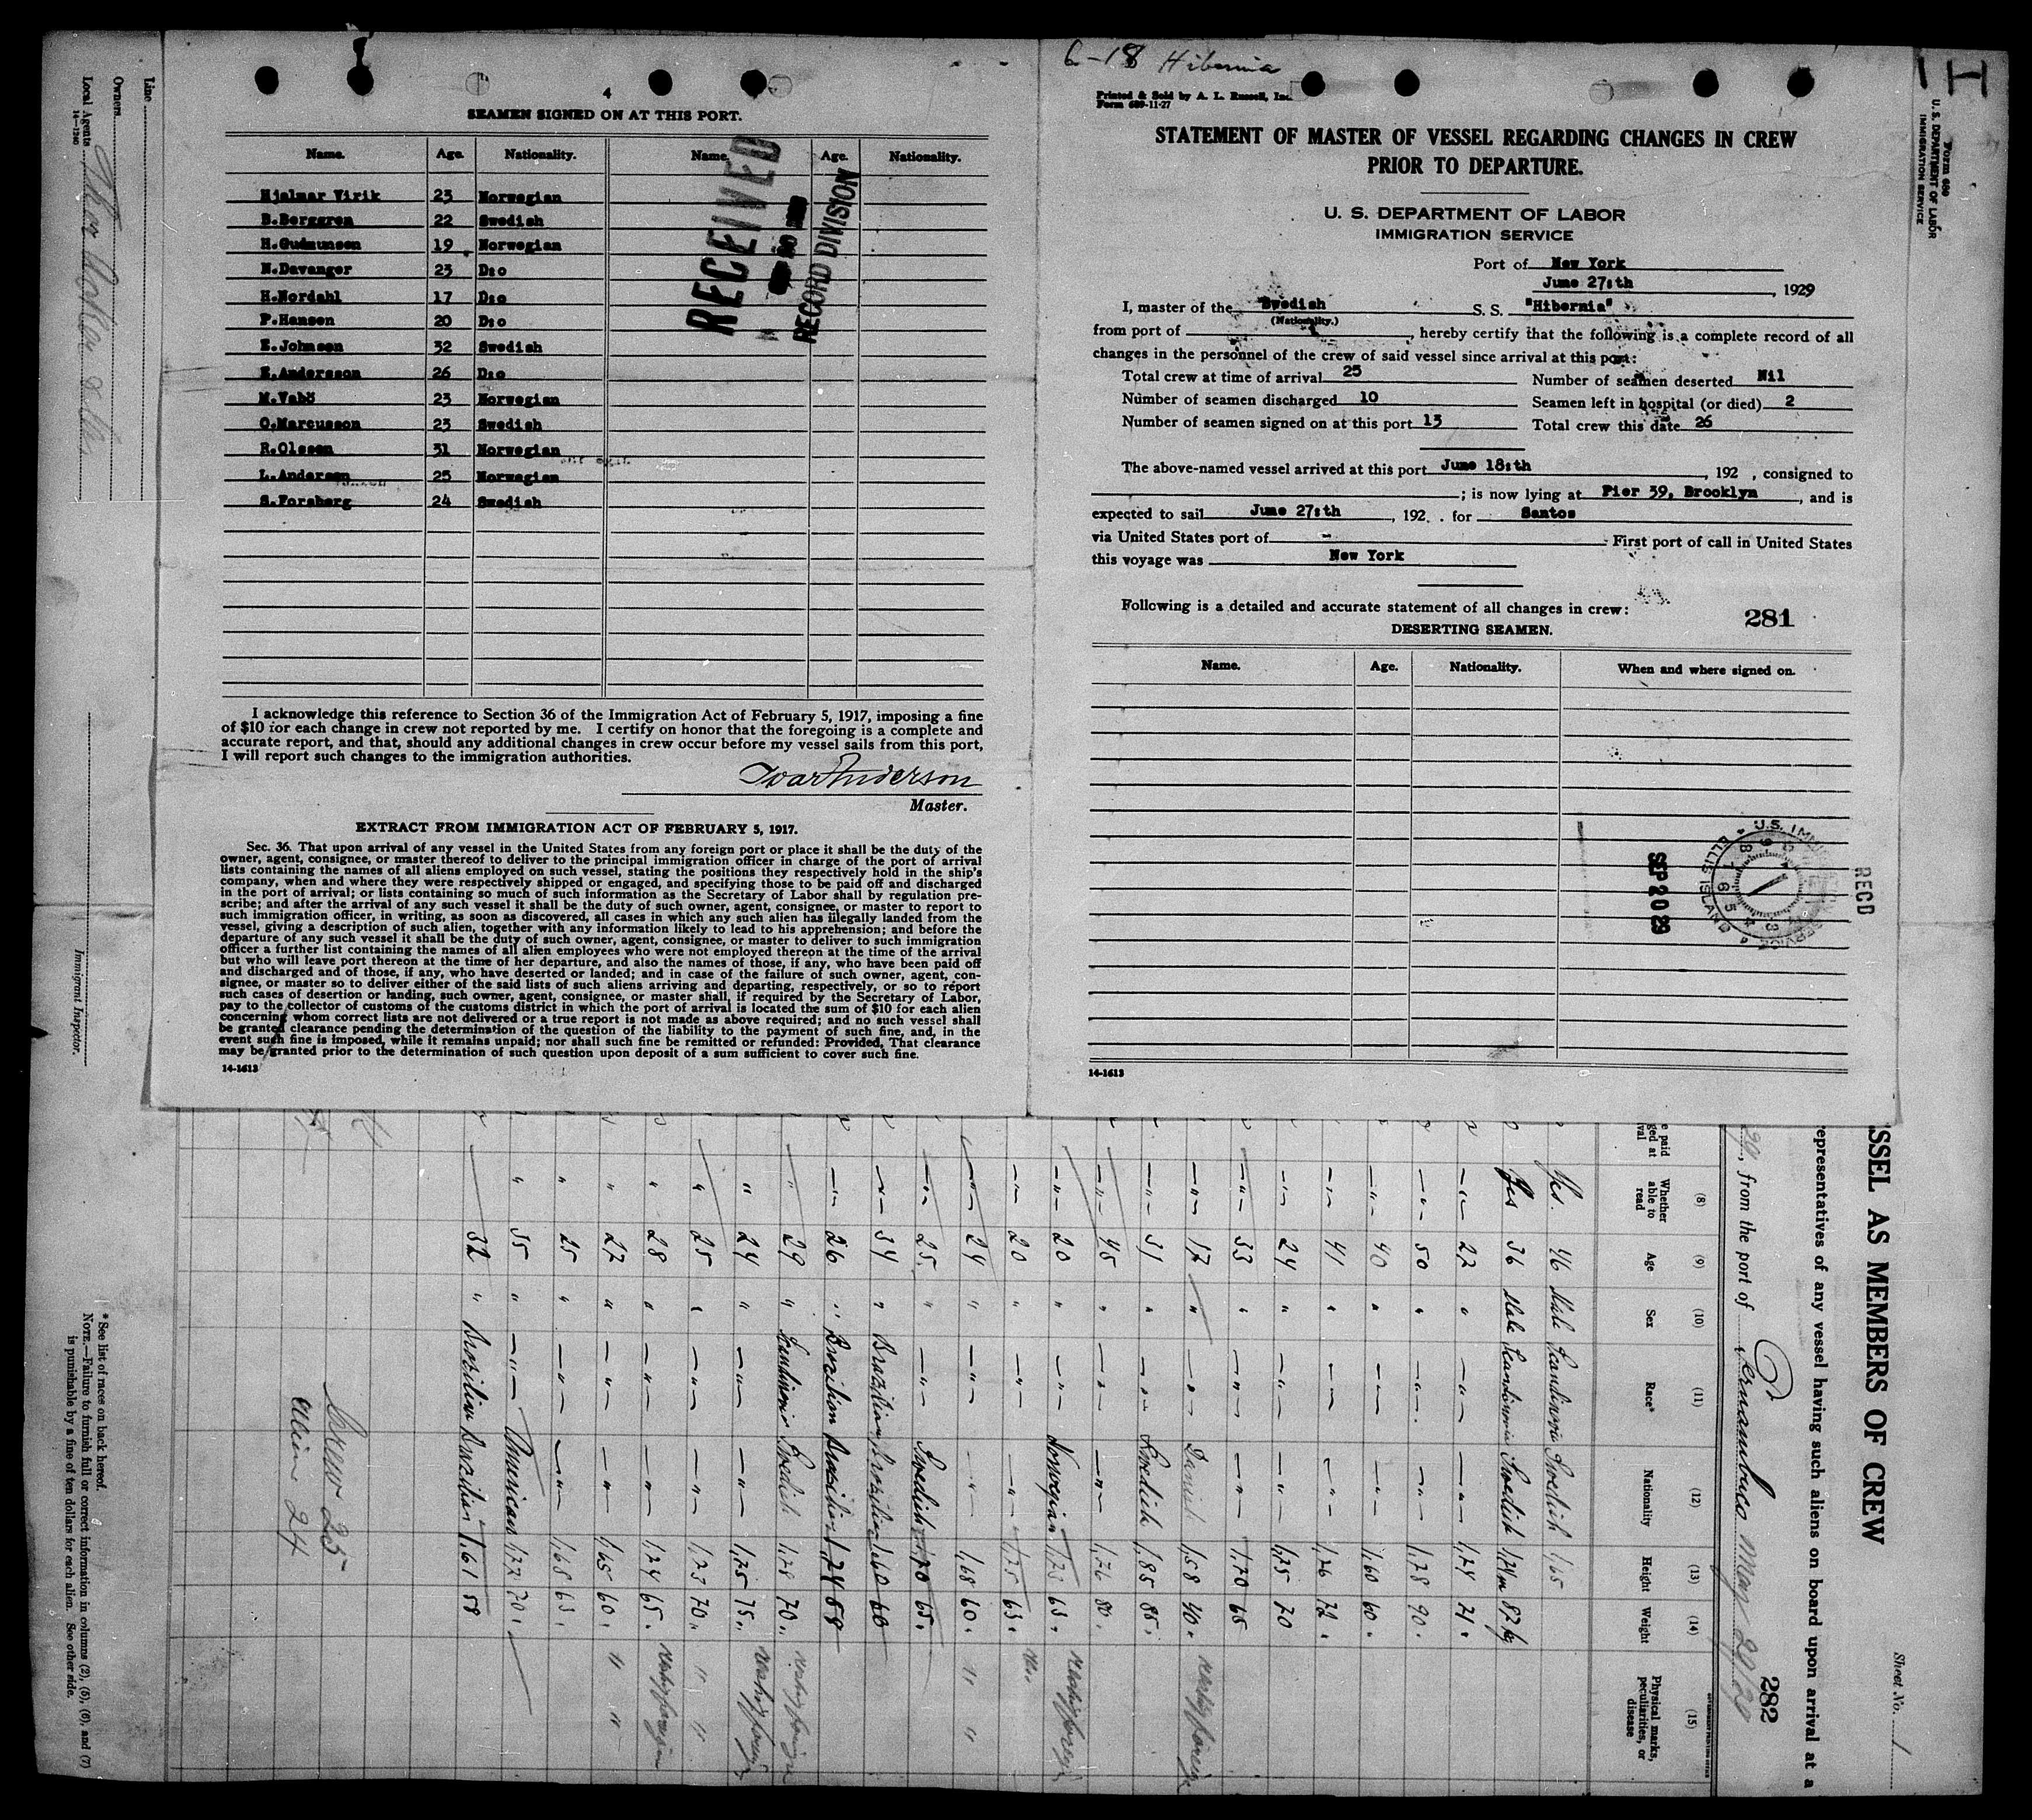 4
SEAMEN SIGNED ON AT THIS PORT.
Name. Age. Nationality. Name. Age. Nationality.
Hjalmar Virik 23 Norwegian
B.Berggren 22 Swedish
H.Gudmunsen 19 Norwegian
N.Davanger 23 D:o
H.Nordahl 17 D:o
P.Hansen 20 D:o
E.Johnson 32 Swedish
E.Andersson 26 D:o
M.Vabö 23 Norwegian
O.Marcusson 23 Swedish
R.Olssen 31 Norwegian
L.Andersen 25 Norwegian
S.Forsberg 24 Swedish
RECEIVED
RECORD DIVISION
I acknowledge this reference to Section 36 of the Immigration Act of February 5, 1917, imposing a fine
of $10 for each change in crew not reported by me. I certify on honor that the foregoing is a complete and
accurate report, and that, should any additional changes in crew occur before my vessel sails from this port,
I will report such changes to the immigration authorities.
Ivar Anderson
Master.
EXTRACT FROM IMMIGRATION ACT OF FEBRUARY 5, 1917.
Sec. 36. That upon arrival of any vessel in the United States from any foreign port or place it shall be the duty of the
owner, agent, consignee, or master thereof to deliver to the principal immigration officer in charge of the port of arrival
lists containing the names of all aliens employed on such vessel, stating the positions they respectively hold in the ship's
company, when and where they were respectively shipped or engaged, and specifying those to be paid off and discharged
in the port of arrival; or lists containing so much of such information as the Secretary of Labor shall by regulation pre-
scribe; and after the arrival of any such vessel it shall be the duty of such owner, agent, consignee, or master to report to
such immigration officer, in writing, as soon as discovered, all cases in which any such alien has illegally landed from the
vessel, giving a description of such alien, together with any information likely to lead to his apprehension; and before the
departure of any such vessel it shall be the duty of such owner, agent, consignee, or master to deliver to such immigration
officer a further list containing the names of all alien employees who were not employed thereon at the time of the arrival
but who will leave port thereon at the time of her departure, and also the names of those, if any, who have been paid off
and discharged and of those, if any, who have deserted or landed; and in case of the failure of such owner, agent, con-
signee, or master so to deliver either of the said lists of such aliens arriving and departing, respectively, or so to report
such cases of desertion or landing, such owner, agent, consignee, or master shall, if required by the Secretary of Labor,
pay to the collector of customs of the customs district in which the port of arrival is located the sum of $10 for each alien
concerning whom correct lists are not delivered or a true report is not made as above required; and no such vessel shall
be granted clearance pending the determination of the question of the liability to the payment of such fine, and, in the
event such fine is imposed, while it remains unpaid; nor shall such fine be remitted or refunded: Provided, That clearance
may be granted prior to the determination of such question upon deposit of a sum sufficient to cover such fine.
14-1613
6-18 Hibernia
Printed & Sold by A. L. Russell, Inc.
Form 689-11-27
STATEMENT OF MASTER OF VESSEL REGARDING CHANGES IN CREW
PRIOR TO DEPARTURE.
U. S. DEPARTMENT OF LABOR
IMMIGRATION SERVICE
Port of New York
June 27:th, 1929
I, master of the Swedish S. S. "Hibernia"
(Nationality.)
from port of , hereby certify that the following is a complete record of all
changes in the personnel of the crew of said vessel since arrival at this port:
Total crew at time of arrival 25 Number of seamen deserted Nil
Number of seamen discharged 10 Seamen left in hospital (or died) 2
Number of seamen signed on at this port 13 Total crew this date 26
The above-named vessel arrived at this port June 18:th, 192 , consigned to
; is now lying at Pier 39, Brooklyn, and is
expected to sail June 27:th, 192 . for Santos
via United States port of - First port of call in United States
this voyage was New York
Following is a detailed and accurate statement of all changes in crew:
281
DESERTING SEAMEN.
Name. Age. Nationality. When and where signed on.
SEP 20 29
U.S. IMM
ELLIS ISLAND
SERVICE
RECD
14-1613
Form 689
U. S. DEPARTMENT OF LABOR
IMMIGRATION SERVICE
Sheet No. 1
SSEL AS MEMBERS OF CREW
epresentatives of any vessel having such aliens on board upon arrival at a
29, from the port of Pernambuco May 29/29
282
(8) (9) (10) (11) (12) (13) (14) (15)
Whether able to read Age Sex Race* Nationality Height Weight Physical marks, peculiarities, or disease
Yes. 46 Male Scandinavia Swedish 1,65
Yes 36 Male Scandinavia Swedish 1,74m 87 kg
-"- 27 " -"- -"- 1,74 71.
-"- 50 " -"- -"- 1,78 90.
-"- 40 " -"- -"- 1,60 60.
-"- 41 " -"- -"- 1,76 72.
-"- 24 " -"- -"- 1,75 70
-"- 33 " -"- -"- 1,70 65
-"- 17 " -"- Danish 1,58 40.
-"- 31 " -"- Swedish 1,85 85.
-"- 45 " -"- -"- 1,76 80.
-"- 20 " -"- Norwegian 1,73 63.
-"- 20 " -"- -"- 1,75 63.
-"- 24 " -"- -"- 1,68 60.
-"- 25 " -"- Swedish 1,70 65.
-"- 34 " Brazilian Brazilian 1,60 60
-"- 26 " Brazilian Brazilian 1,74 58
" 29 " Swedish 1,78 70.
" 24 " -"- -"- 1,75 75.
" 25 " -"- -"- 1,73 70.
" 28 " -"- -"- 1,74 65.
" 27 " -"- -"- 1,65 60.
" 25 " -"- -"- 1,68 63.
" 35 " -"- American 1,77 70.
32 " Brazilian Brazilian 1,61 58
Crew 25
Alien 24
* See list of races on back hereof.
NOTE.—Failure to furnish full or correct information in columns (2), (5), (6), and (7)
is punishable by a fine of ten dollars for each alien. See other side.
Line
Owners
Local Agents
14-1240
Immigrant Inspector.